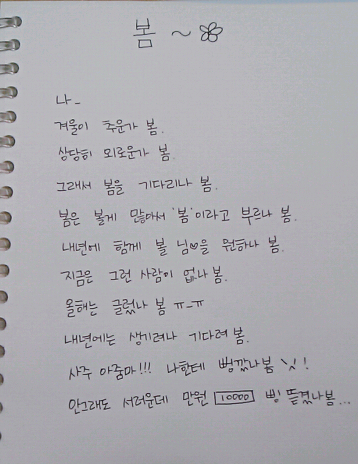 봄 ~
나_
겨울이 추운가 봄.
상당히 외로운가 봄.
그래서 봄을 기다리나 봄.
봄은 볼게 많아서 '봄'이라고 부르나 봄.
내년에 함께 볼 님♡을 원하나 봄.
지금은 그런 사람이 없나 봄.
올해는 글렀나 봄 ㅠ_ㅠ
내년에는 생기려나 기다려 봄.
사주 아줌마!!! 나한테 뻥깠나봄 !
안그래도 서러운데 만원 10000 삥 뜯겼나봄...